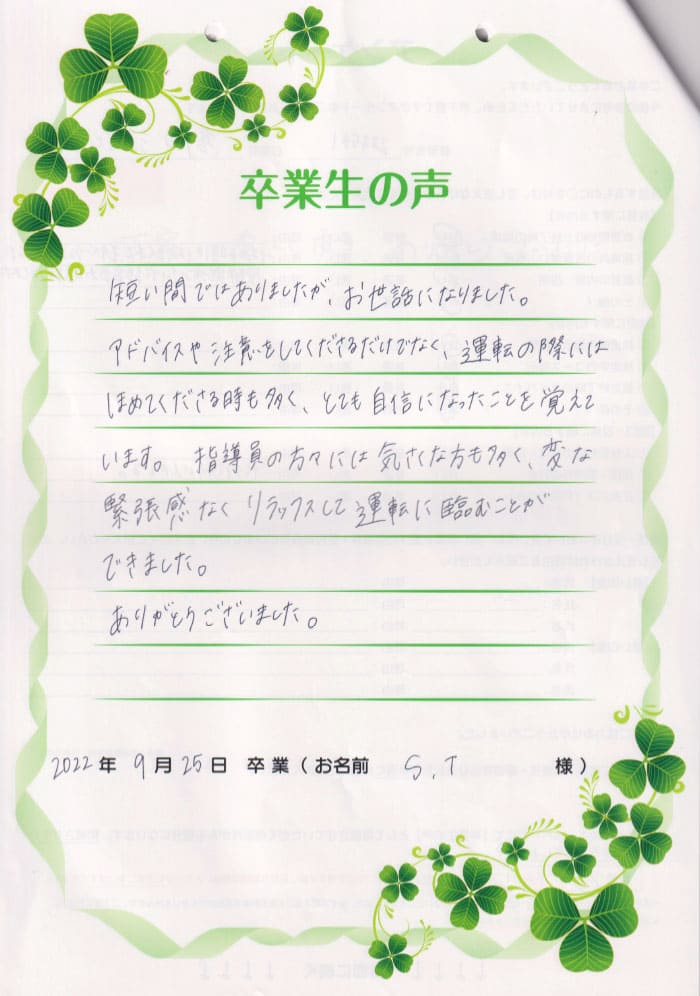 卒業生の声
短い間ではありましたが、お世話になりました。
アドバイスや注意をしてくださるだけでなく、運転の際には
ほめてくださる時も多く、とても自信になったことを覚えて
います。 指導員の方々には気さくな方も多く、変な
緊張感なくリラックスして運転に臨むことが
できました。
ありがとうございました。
2022年 9月25日 卒業(お名前 S.T 様)